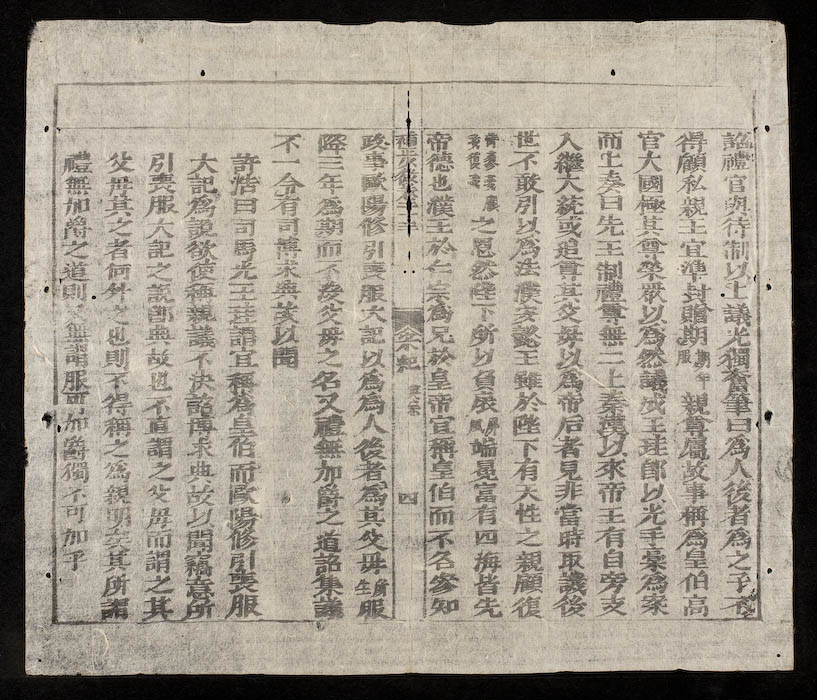 詔禮官與待制以上議光獨奮筆曰為人後者為之子不
得顧私親王宜準封贈期期年服親尊屬故事稱為皇伯高
官大國極其尊榮眾以為然議成王珪即以光手稾為案
而上奏曰先王制禮尊無二上秦漢以來帝王有自旁支
入繼大統或追尊其父母以為帝后者見非當時取譏後
世不敢引以為法濮安懿王雖於陛下有天性之親顧復
之恩然陛下所以負扆端冕富有四海皆先
帝德也濮王於仁宗為兄於皇帝宜稱皇伯而不名參知
宋紀
四
政事歐陽修引喪服大記以為為人後者為其父母所生服
降三年為期而不沒父母之名又禮無加爵之道詔集議
不一令有司博求典故以聞
許浩曰司馬光王珪謂宜稱為皇伯而歐陽修引喪服
大記為說欲使稱親議不決詔博求典故以聞竊意所
引喪服大記之說即典故也不直謂之父母而謂之其
父母其之者何外之也則不得稱之為親明矣其所謂
禮無加爵之道則無謂服可加爵獨不可加乎